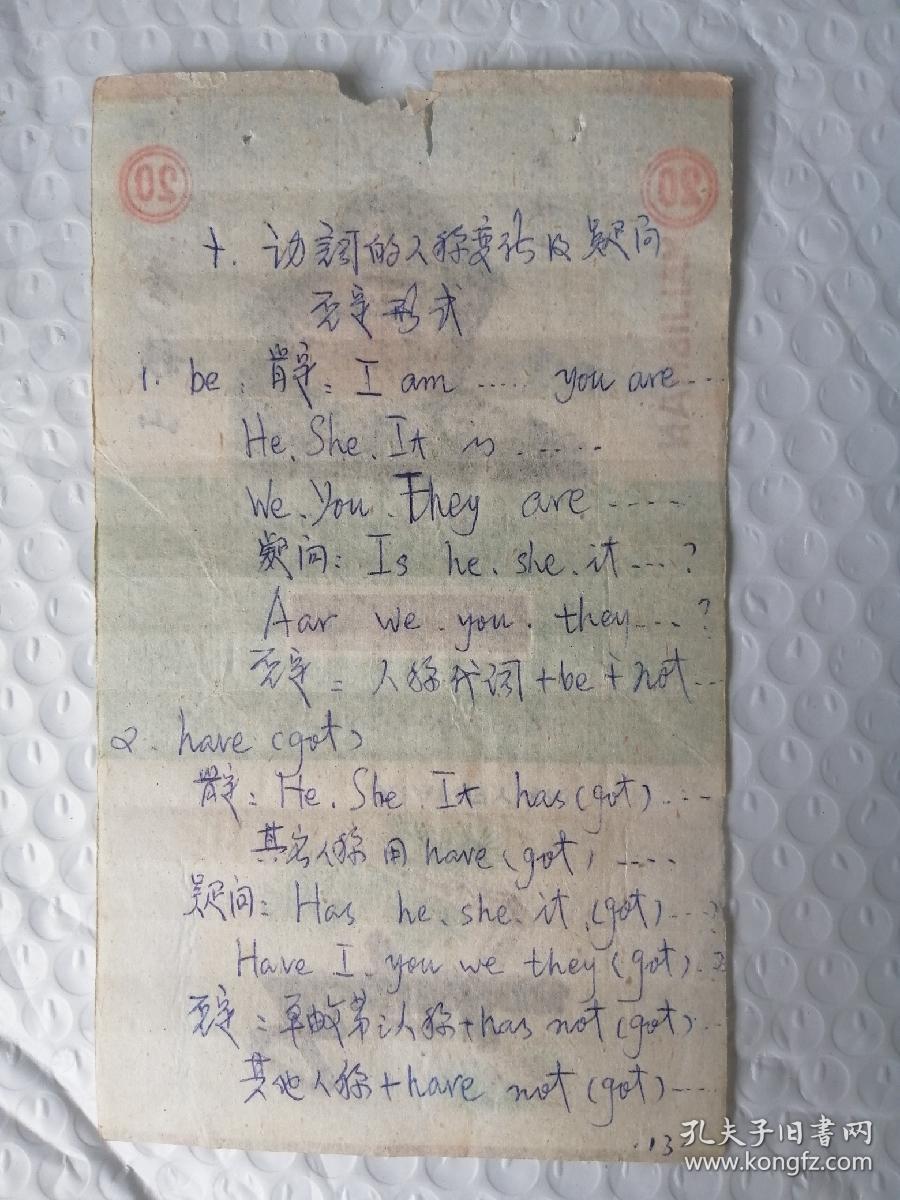 20 20
十. 动词的人称变化及疑问
否定形式
1. be: 肯定: I am ..... you are...
He. She. It is ......
We. You. They are ....
疑问: Is he. she. it ....?
Aar we. you. they....?
否定: 人称代词+be+not...
2. have (got)
肯定: He. She. It has (got)....
其它人称 用 have (got) ....
疑问: Has he. she. it (got)....?
Have I. you we they (got).?
否定: 单数第三人称+has not (got)...
其他人称+have not (got)....
.13
孔夫子旧书网
www.kongfz.com